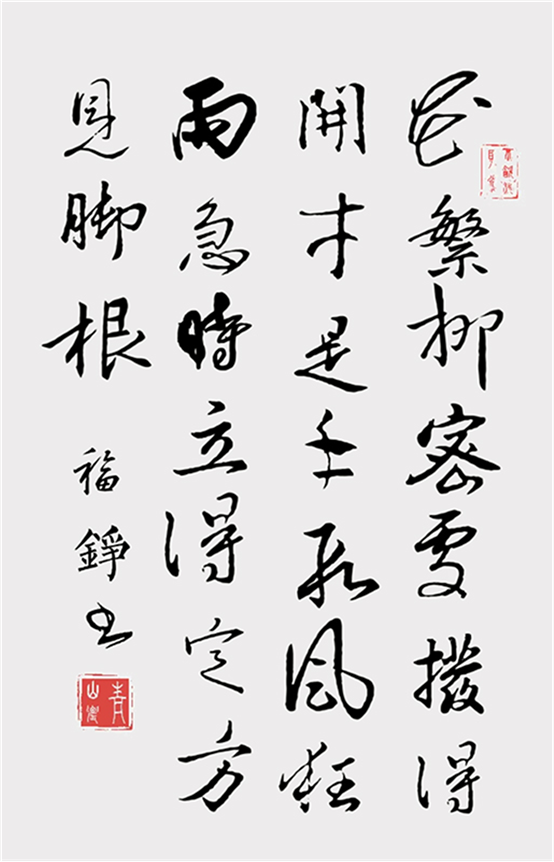 花繁柳密處撥得
開才是手段風狂
雨急時立得定方
見脚根
福錚书
青山